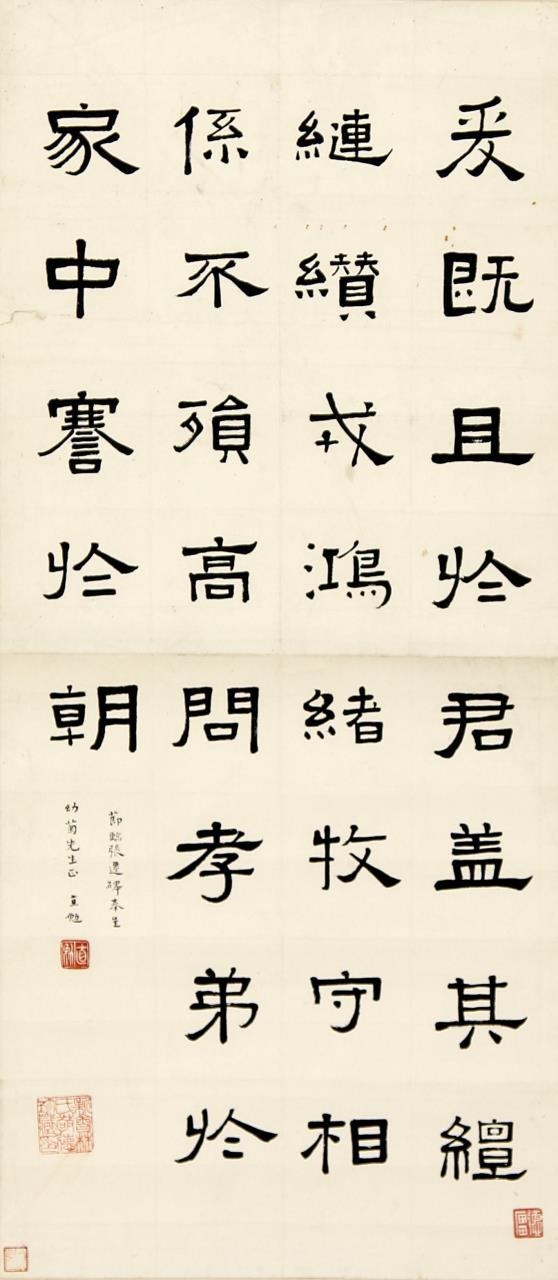 爰既且於君盖其繵
縺纘戎鴻緒牧守相
係不殞高問孝弟於
家中謇於朝
節臨張遷碑奉呈
幼菊先生正 直勉